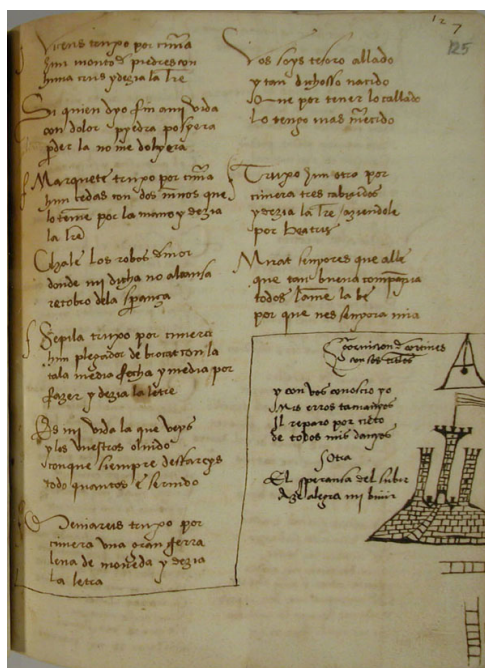 127
125
Vicens truxo por cimera
hun monte de piedres con
huna crus y dezia la lre
Si quien dyo fin ami vida
con dolor pyedra posyera
perder la no me dolyera
Marquete truxo por cimera
hun tedas con dos minos que
lo tenie por la mano y dezia
la lre
Chale los robos
donde mi dicha no alcansa
retobro dela sperança
Sepila truxo por cimera
hun plegador de brocat con la
tala media fecha y media por
fazer y dezia la letre
Es mi vida la que veys
y los vuestros olvido
conque siempre
todo quantos e servido
truxo por
cimera una gran gerra
lena de moneda y dezia
la letra
Vos soys tesoro allado
y tan dichosso nacido
Que por tener lo callado
lo tengo mas merecido
Truxo hun otro por
cimera tres
y dezia la lre
por beatris
Mirat senyores que alle
que tan buena compañia
todos lame la be
por que nes senyora mia
con sos
y con vos conoscio yo
Mis erros tamanyos
Il reparo por cierto
de todos mis danyos
Otra
El speransa del subir
Aze alegra mi biuir